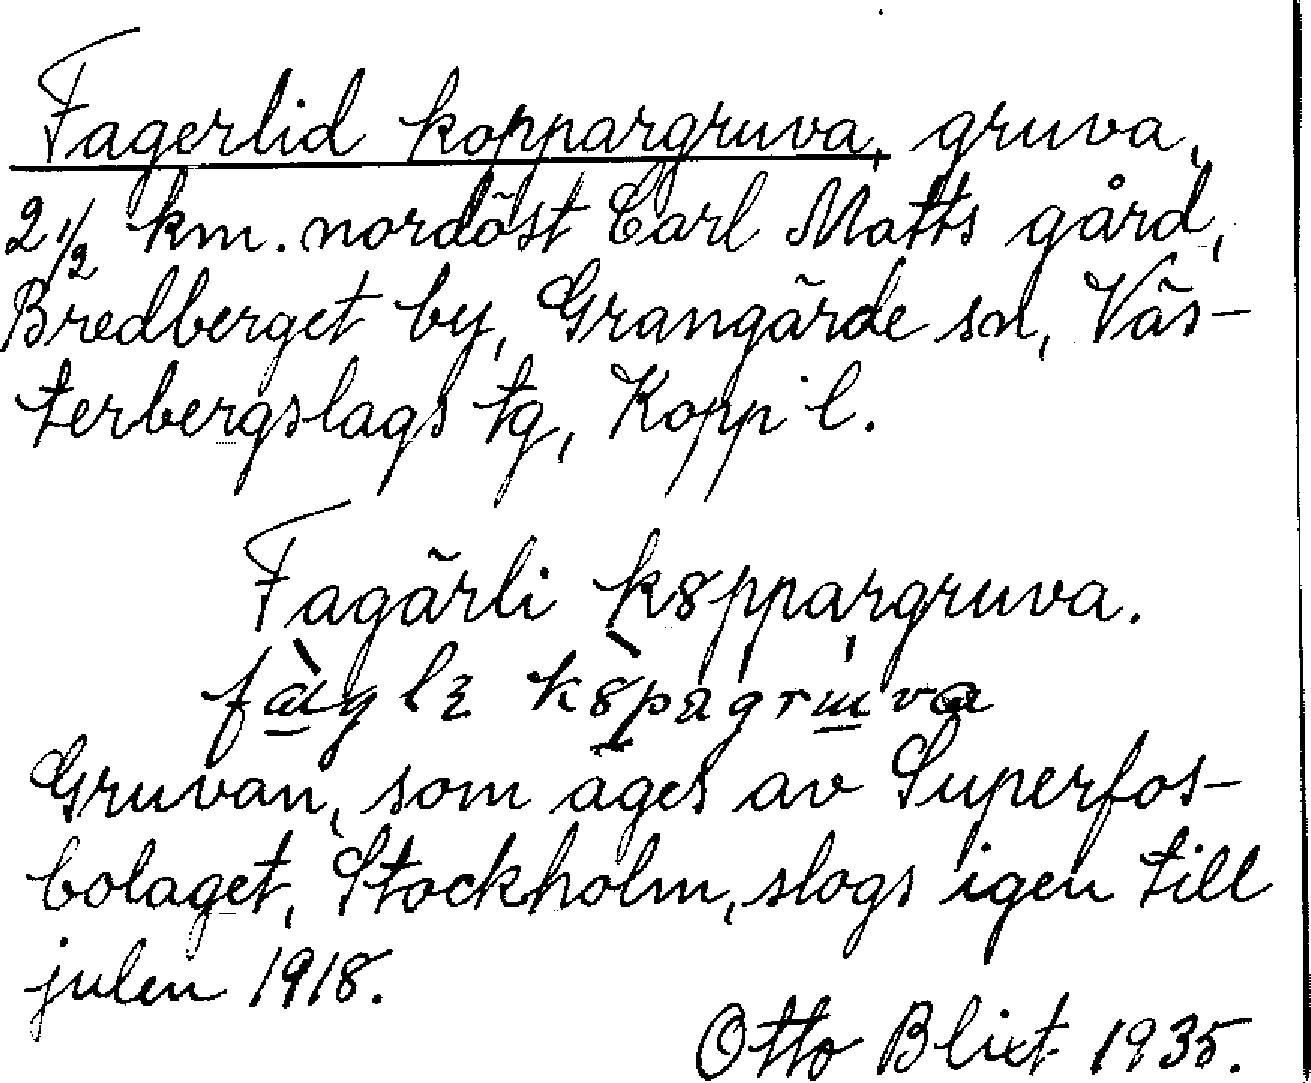 Fagerlid koppargruva, gruva,
2 1/2 km. nordöst Carl Matts gård,
Bredberget by, Grangärde sn, Väs-
terbergslags tg, Kopp. l.
Fagärli k8ppargruva.
Gruvan, som äges av Superfos-
bolaget, Stockholm, slogs igen till
julen 1918.
Otto Blixt 1935.